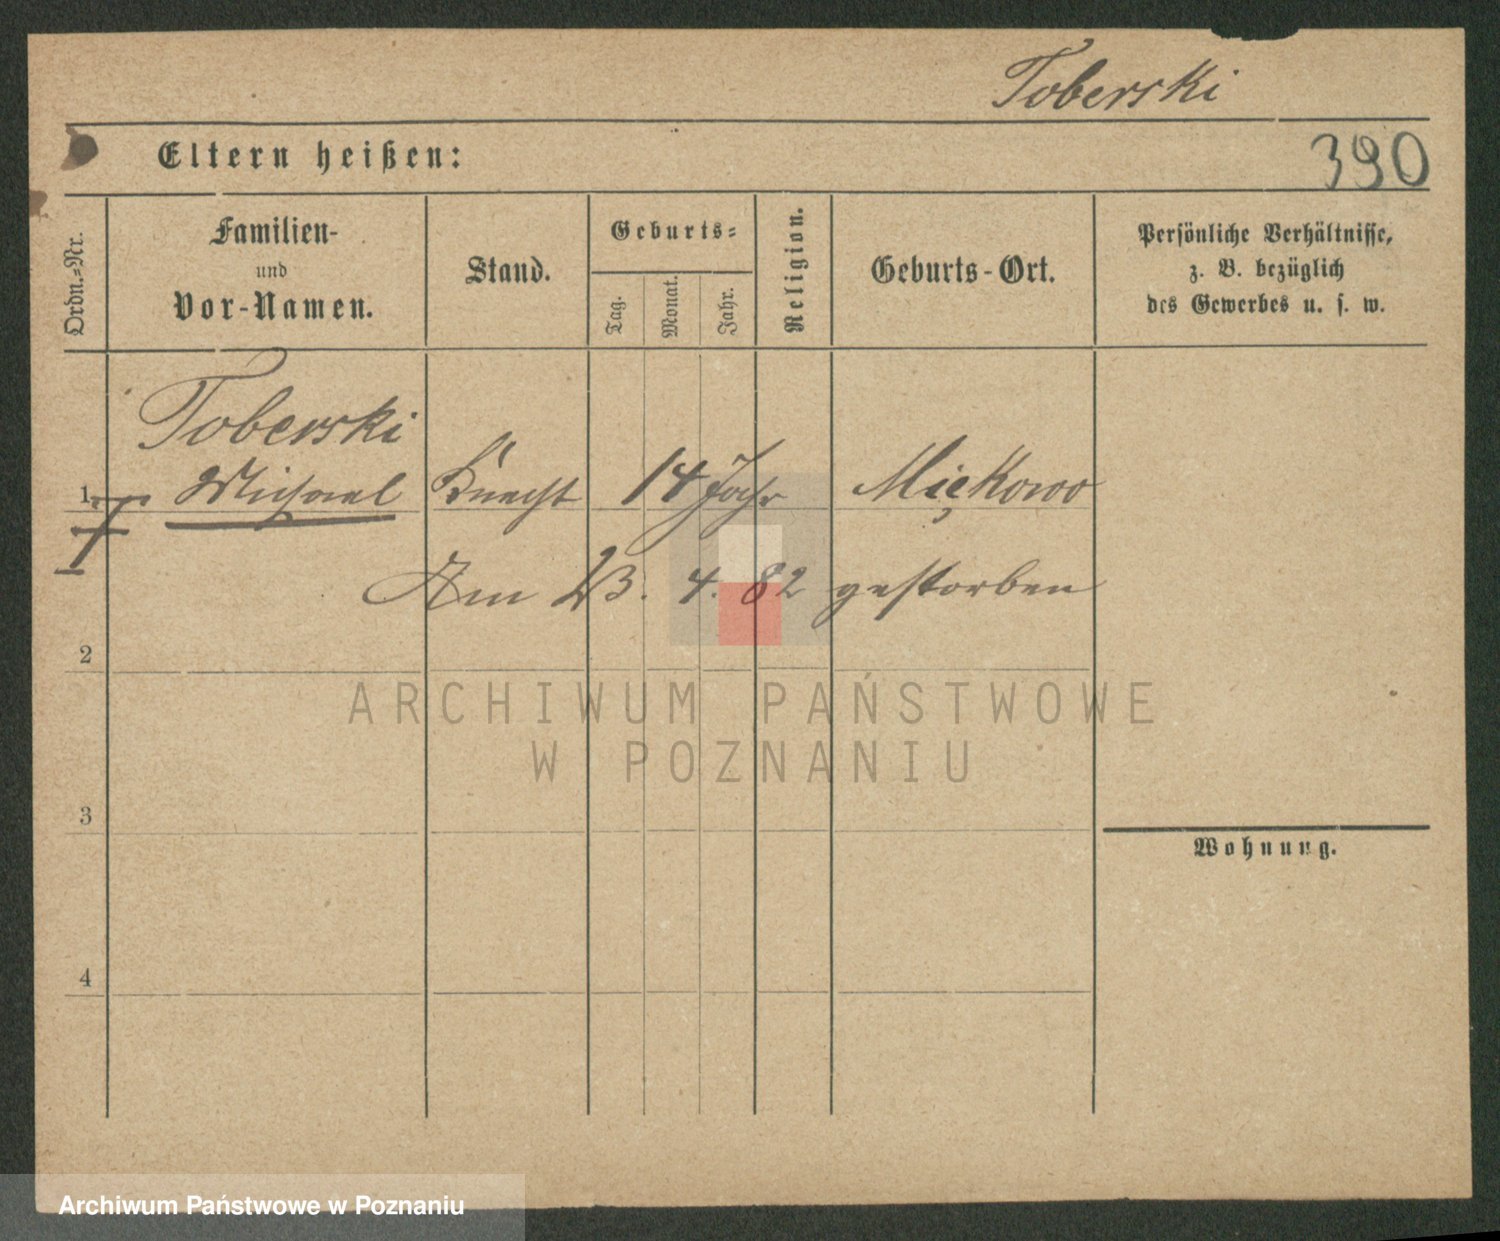 Toberski
Eltern heißen:
390
Ordn.-Nr.
Familien-
und
Vor-Namen.
Stand.
Geburts-
Tag.
Monat.
Jahr.
Religion.
Geburts-Ort.
Persönliche Verhältnisse,
z. B. bezüglich
des Gewerbes u. s. w.
Toberski
1. Michael Knecht 14 Jahr Miękowo
Am 23. 4. 82 gestorben
2
ARCHIWUM PAŃSTWOWE
W POZNANIU
3
Wohnung.
4
Archiwum Państwowe w Poznaniu